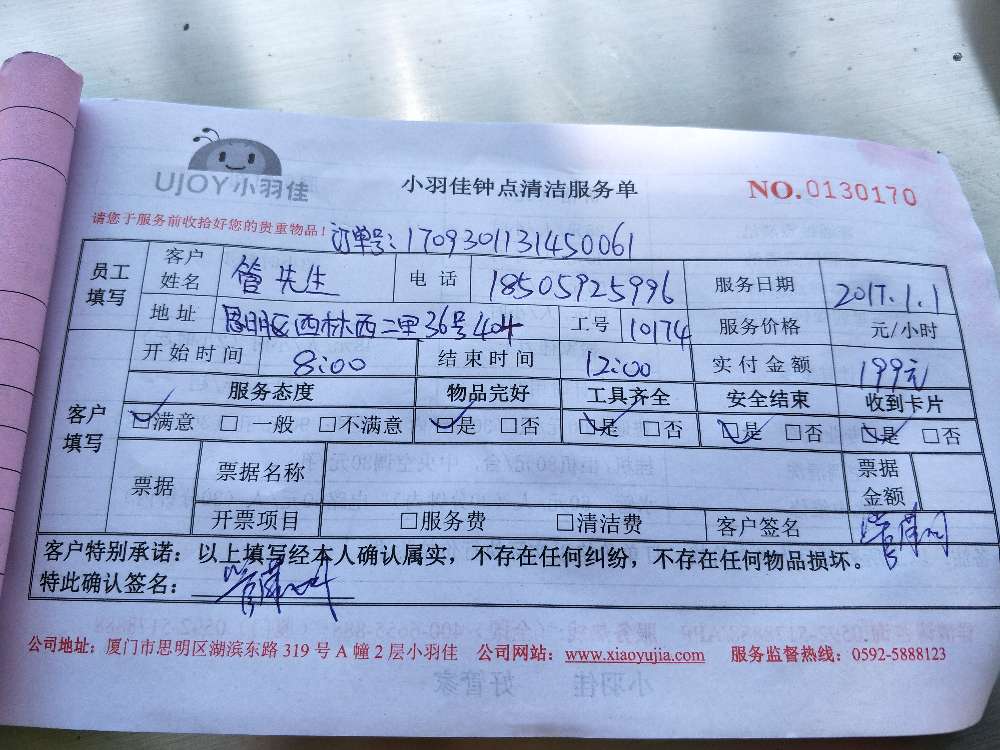 UJOY小羽佳
小羽佳钟点清洁服务单
NO.0130170
请您于服务前收拾好您的贵重物品!
订单号:1709301131450061
员工填写 客户姓名 管先生 电话 18505925996 服务日期 2017.1.1
地址 思明区西林西二里36号404 工号 10174 服务价格 元/小时
客户填写 开始时间 8:00 结束时间 12:00 实付金额 199元
服务态度 物品完好 工具齐全 安全结束 收到卡片
☑满意 □一般 □不满意 ☑是 □否 ☑是 □否 ☑是 □否 ☑是 □否
票据 票据名称 票据金额
开票项目 □服务费 □清洁费 客户签名
客户特别承诺：以上填写经本人确认属实，不存在任何纠纷，不存在任何物品损坏。
特此确认签名：
公司地址：厦门市思明区湖滨东路 319 号 A 幢 2 层小羽佳 公司网站：www.xiaoyujia.com 服务监督热线：0592-5888123